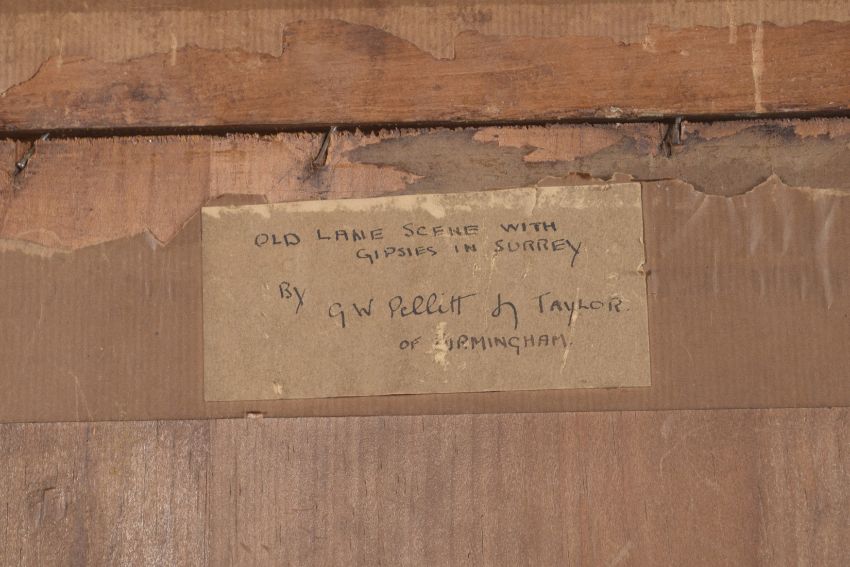 OLD LANE SCENE WITH
GIPSIES IN SURREY
By
GW Pellitt TAYLOR.
OF BIRMINGHAM.